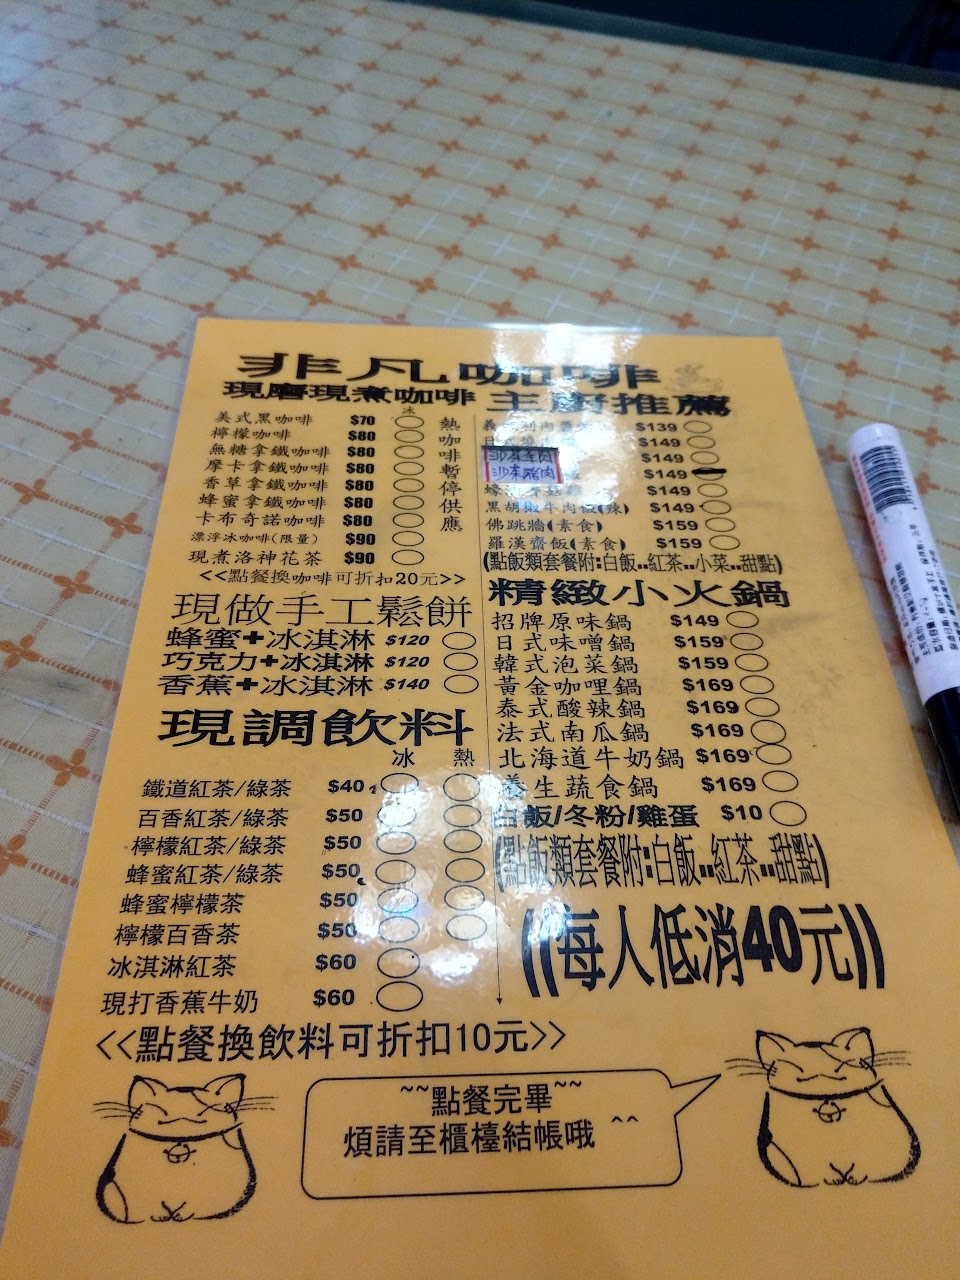 非凡咖啡
現磨現煮咖啡
冰
美式黑咖啡 $70
檸檬咖啡 $80
無糖拿鐵咖啡 $80
摩卡拿鐵咖啡 $80
香草拿鐵咖啡 $80
蜂蜜拿鐵咖啡 $80
卡布奇諾咖啡 $80
漂浮冰咖啡(限量) $90
現煮洛神花茶 $90
熱咖啡暫停供應
<<點餐換咖啡可折扣20元>>
現做手工鬆餅
蜂蜜+冰淇淋 $120
巧克力+冰淇淋 $120
香蕉+冰淇淋 $140
現調飲料
冰 熱
鐵道紅茶/綠茶 $40
百香紅茶/綠茶 $50
檸檬紅茶/綠茶 $50
蜂蜜紅茶/綠茶 $50
蜂蜜檸檬茶 $50
檸檬百香茶 $50
冰淇淋紅茶 $60
現打香蕉牛奶 $60
<<點餐換飲料可折扣10元>>
主廚推薦
$139
$149
$149
沙茶豬肉 $149
$149
黑胡椒牛肉飯(辣) $149
佛跳牆(素食) $159
羅漢齋飯(素食) $159
(點飯類套餐附:白飯..紅茶..小菜..甜點)
精緻小火鍋
招牌原味鍋 $149
日式味噌鍋 $159
韓式泡菜鍋 $159
黃金咖哩鍋 $169
泰式酸辣鍋 $169
法式南瓜鍋 $169
北海道牛奶鍋 $169
養生蔬食鍋 $169
白飯/冬粉/雞蛋 $10
(點飯類套餐附:白飯..紅茶..甜點)
((每人低消40元))
~~點餐完畢~~
煩請至櫃檯結帳哦 ^^